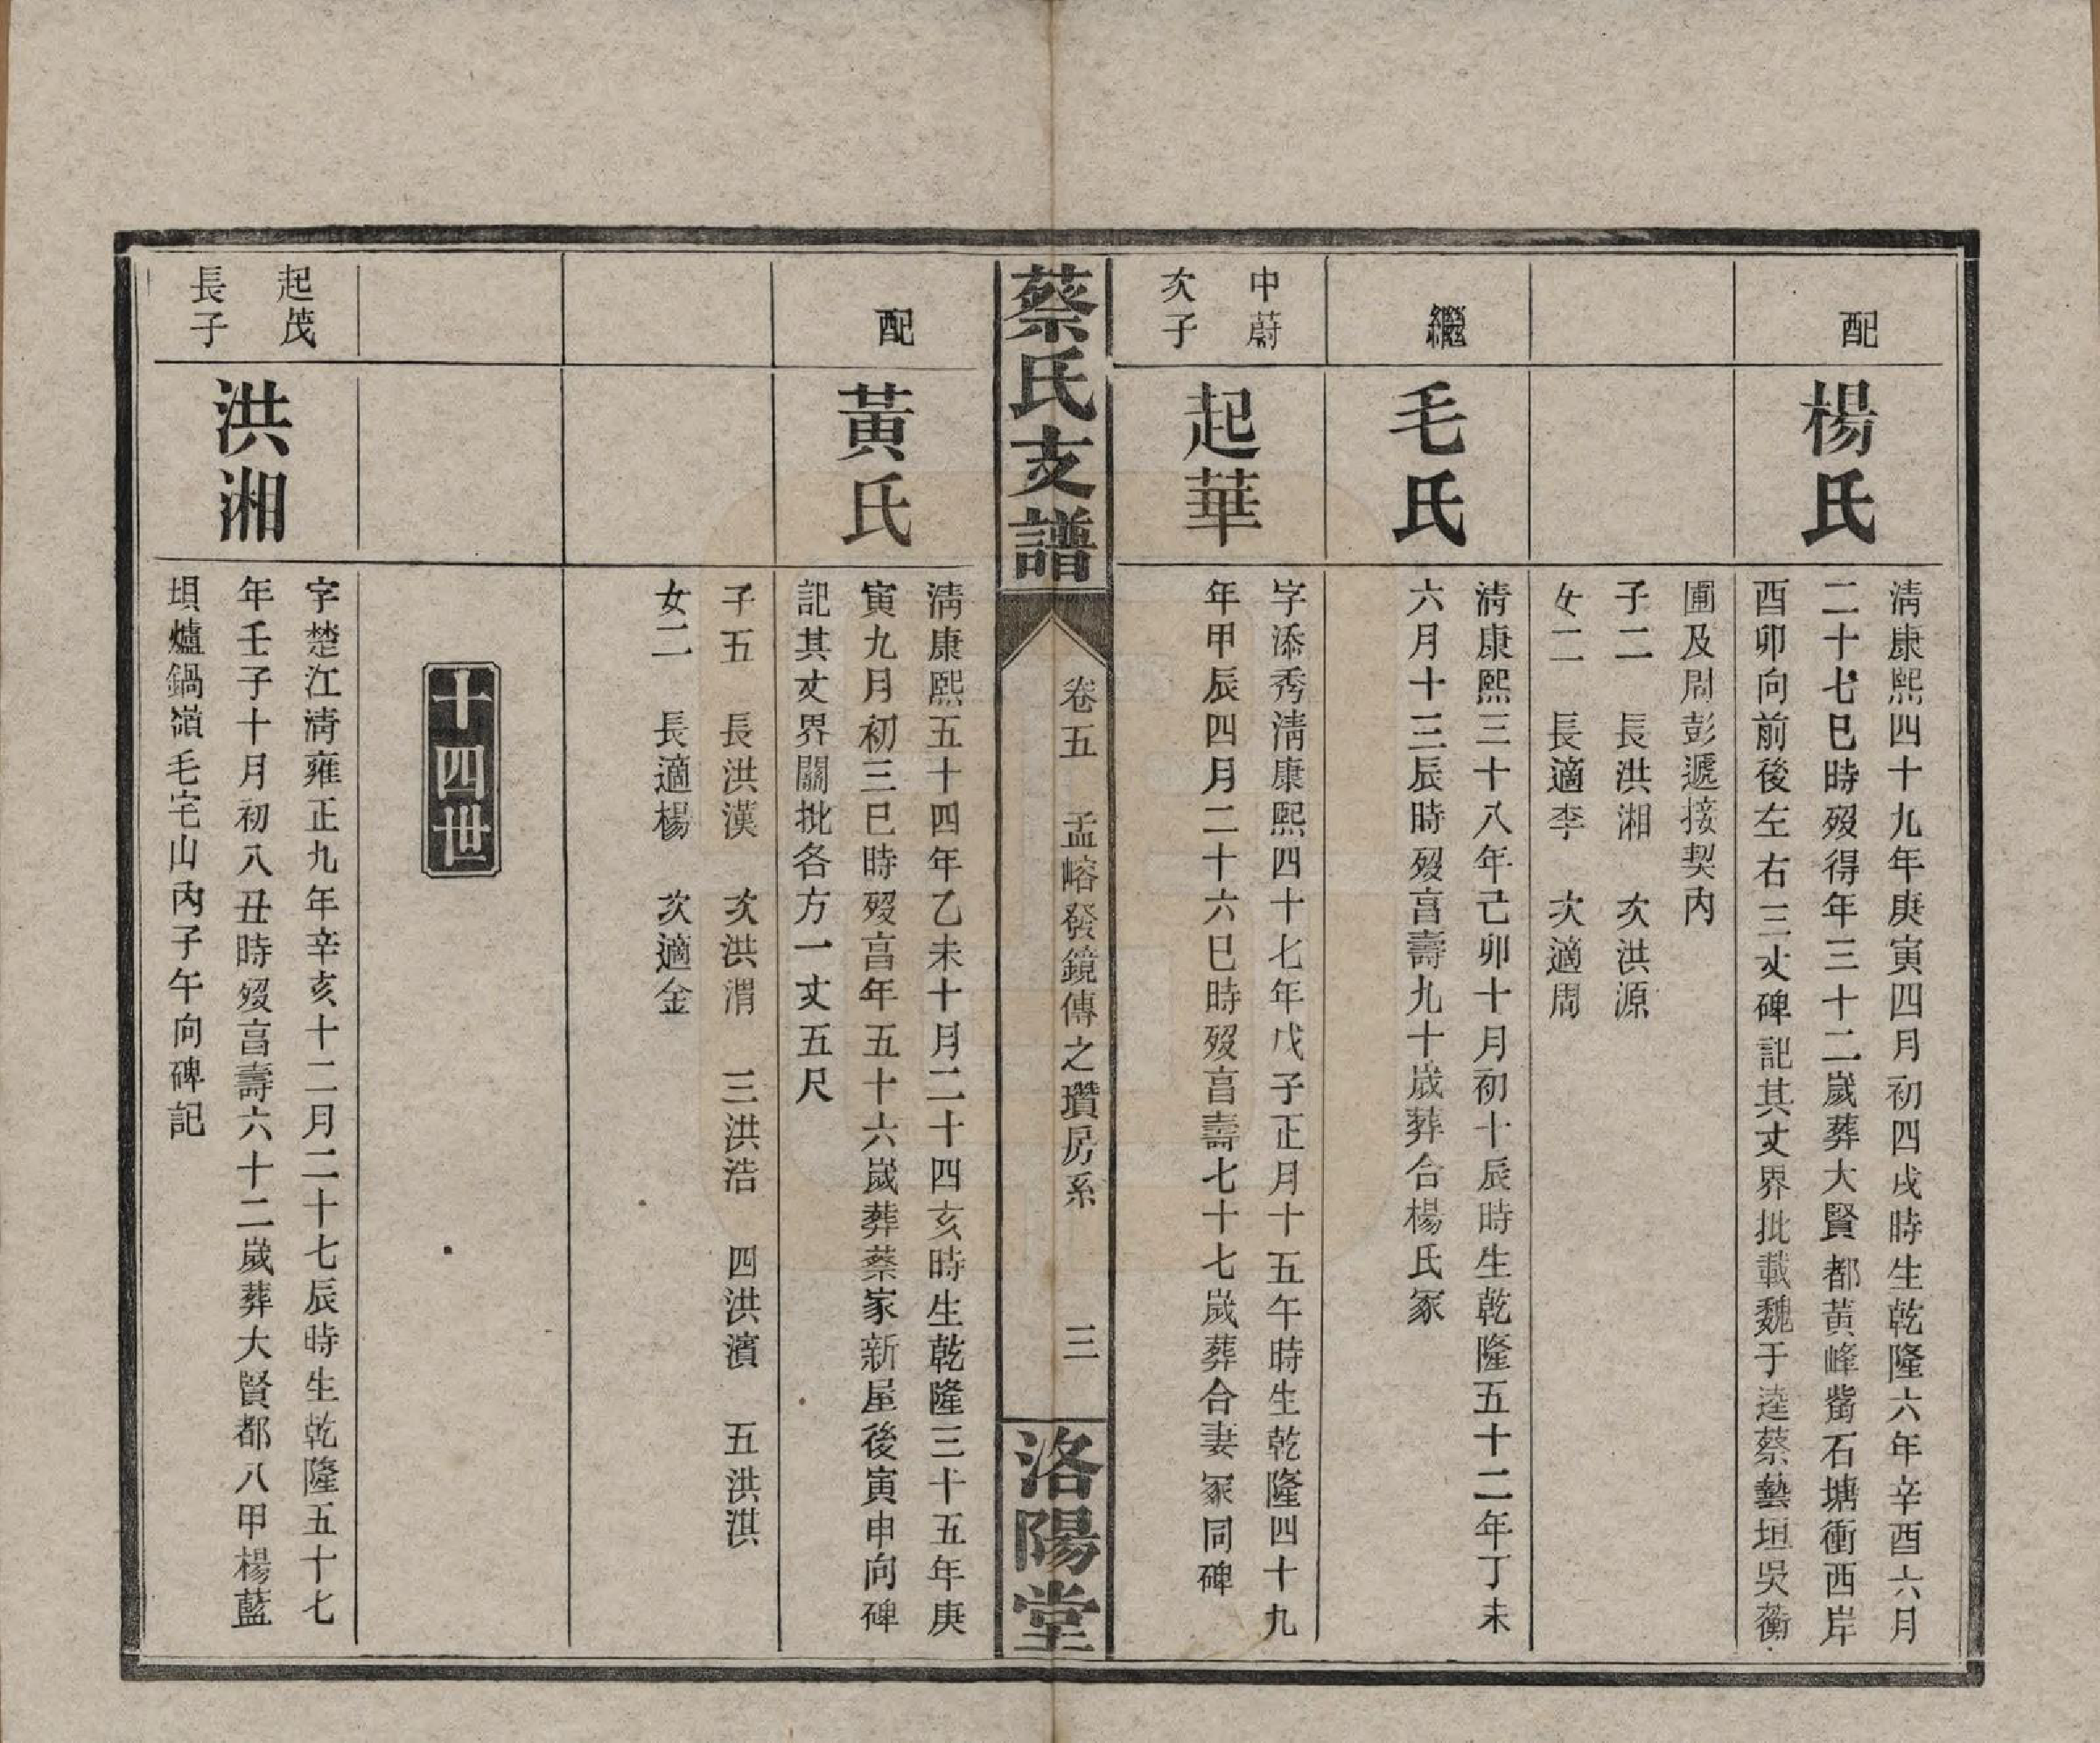 配
楊氏
淸康熙四十九年庚寅四月初四戌時生乾隆六年辛酉六月
二十七巳時歿得年三十二歲葬大賢都黃峰觜石塘衝西岸
酉卯向前後左右三丈碑記其丈界批載魏于逵蔡藝垣吳蘅
圃及周彭遞接契內
子二 長洪湘 次洪源
女二 長適李 次適周
繼
毛氏
淸康熙三十八年己卯十月初十辰時生乾隆五十二年丁未
六月十三辰時歿亯壽九十歲葬合楊氏冢
中蔚
次子
起華
字添秀淸康熙四十七年戊子正月十五午時生乾隆四十九
年甲辰四月二十六巳時歿亯壽七十七歲葬合妻冢同碑
蔡氏支譜
卷五 孟嵱發鏡傳之瓚房系 三
洛陽堂
配
黃氏
淸康熙五十四年乙未十月二十四亥時生乾隆三十五年庚
寅九月初三巳時歿亯年五十六歲葬蔡家新屋後寅申向碑
記其丈界關批各方一丈五尺
子五 長洪漢 次洪渭 三洪浩 四洪濱 五洪淇
女二 長適楊 次適金
十四世
起茂
長子
洪湘
字楚江淸雍正九年辛亥十二月二十七辰時生乾隆五十七
年壬子十月初八丑時歿亯壽六十二歲葬大賢都八甲楊藍
垻爐鍋嶺毛宅山內子午向碑記